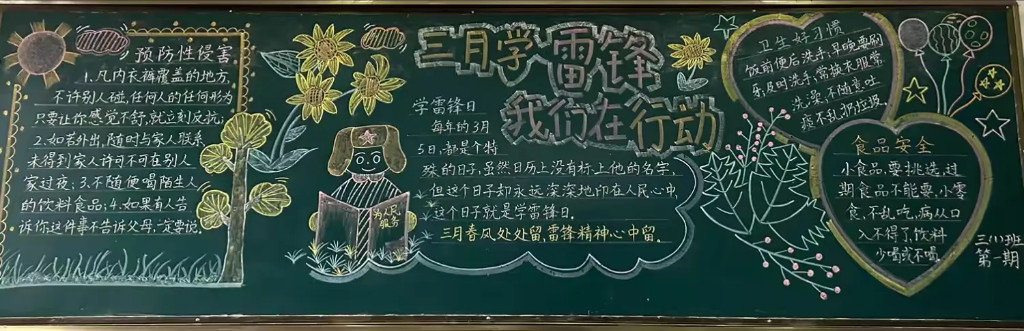 预防性侵害
1.凡内衣裤覆盖的地方,
不许别人碰,任何人的任何形为
只要让你感觉不舒,就立刻反抗;
2.如若外出,随时与家人联系
未得到家人许可不可在别人
家过夜;3.不随便喝陌生人
的饮料食品;4.如果有人告
诉你这件事不告诉父母,一定要说。
三月学雷锋
我们在行动
学雷锋日
每年的3月
5日,都是个特
殊的日子,虽然日历上没有标上他的名字,
但这个日子却永远深深地印在人民心中,
这个日子就是学雷锋日。
三月春风处处留,雷锋精神心中留。
为人民
服务
卫生好习惯
饭前便后洗手,早晚要刷
牙及时洗手,常换衣服常
洗澡,不随意吐
痰不乱扔垃圾。
食品安全
小食品,要挑选,过
期食品不能要,小零
食,不乱吃,病从口
入不得了,饮料
少喝或不喝。
三(1)班
第一期